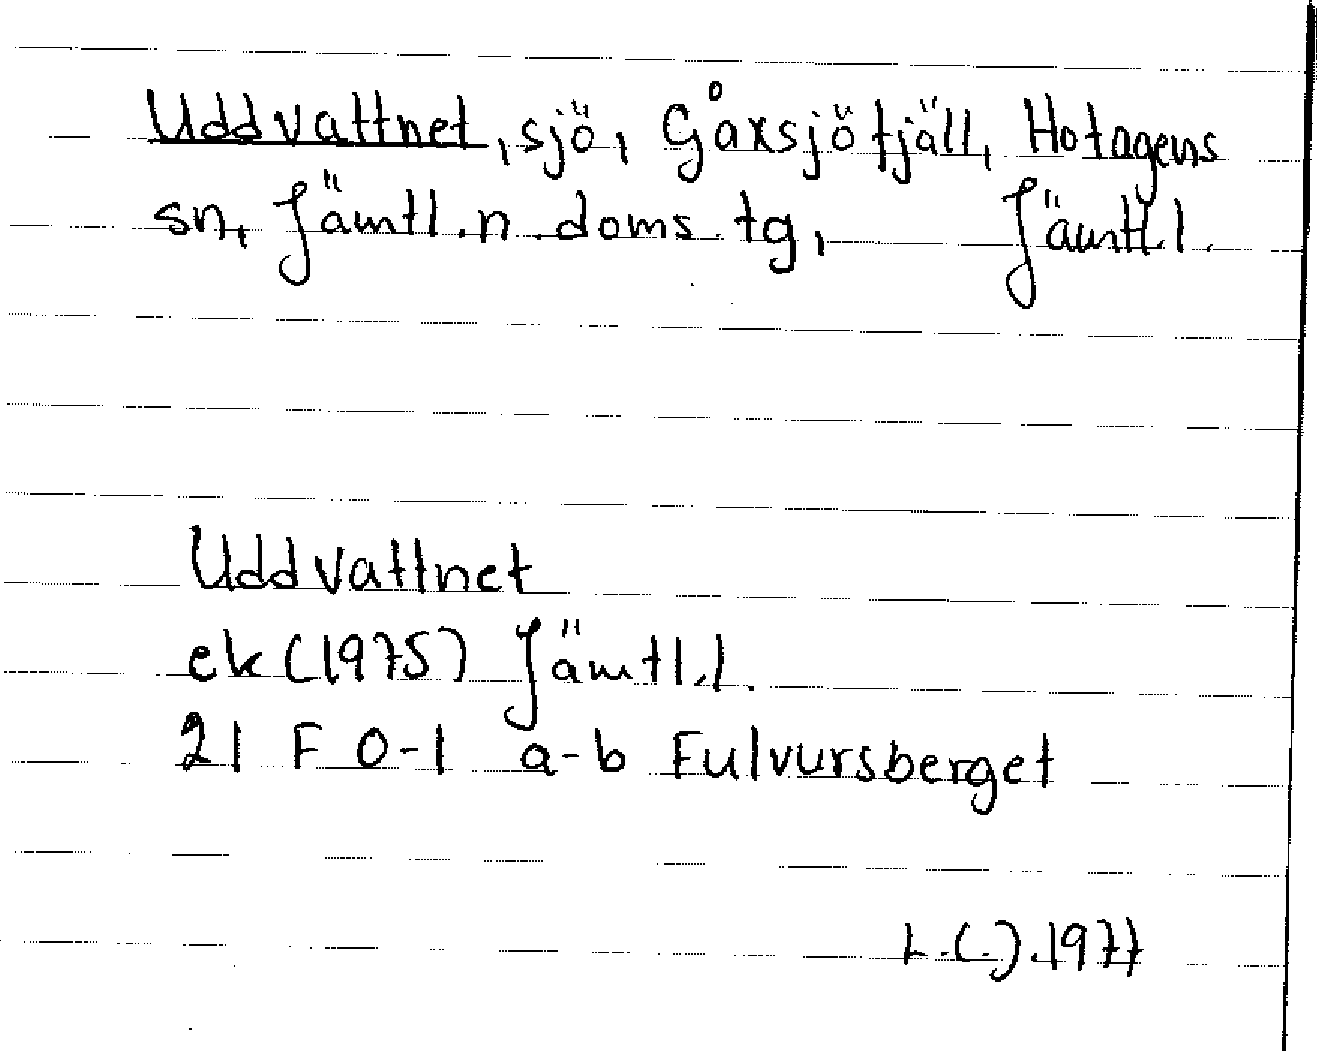 Uddvattnet, sjö, Gåxsjöfjäll, Hotagens
sn, Jämtl. n. doms. tg, Jämtl. l.
Uddvattnet
ek (1975) Jämtl. l.
21 F 0-1 a-b Fulvursberget
1977